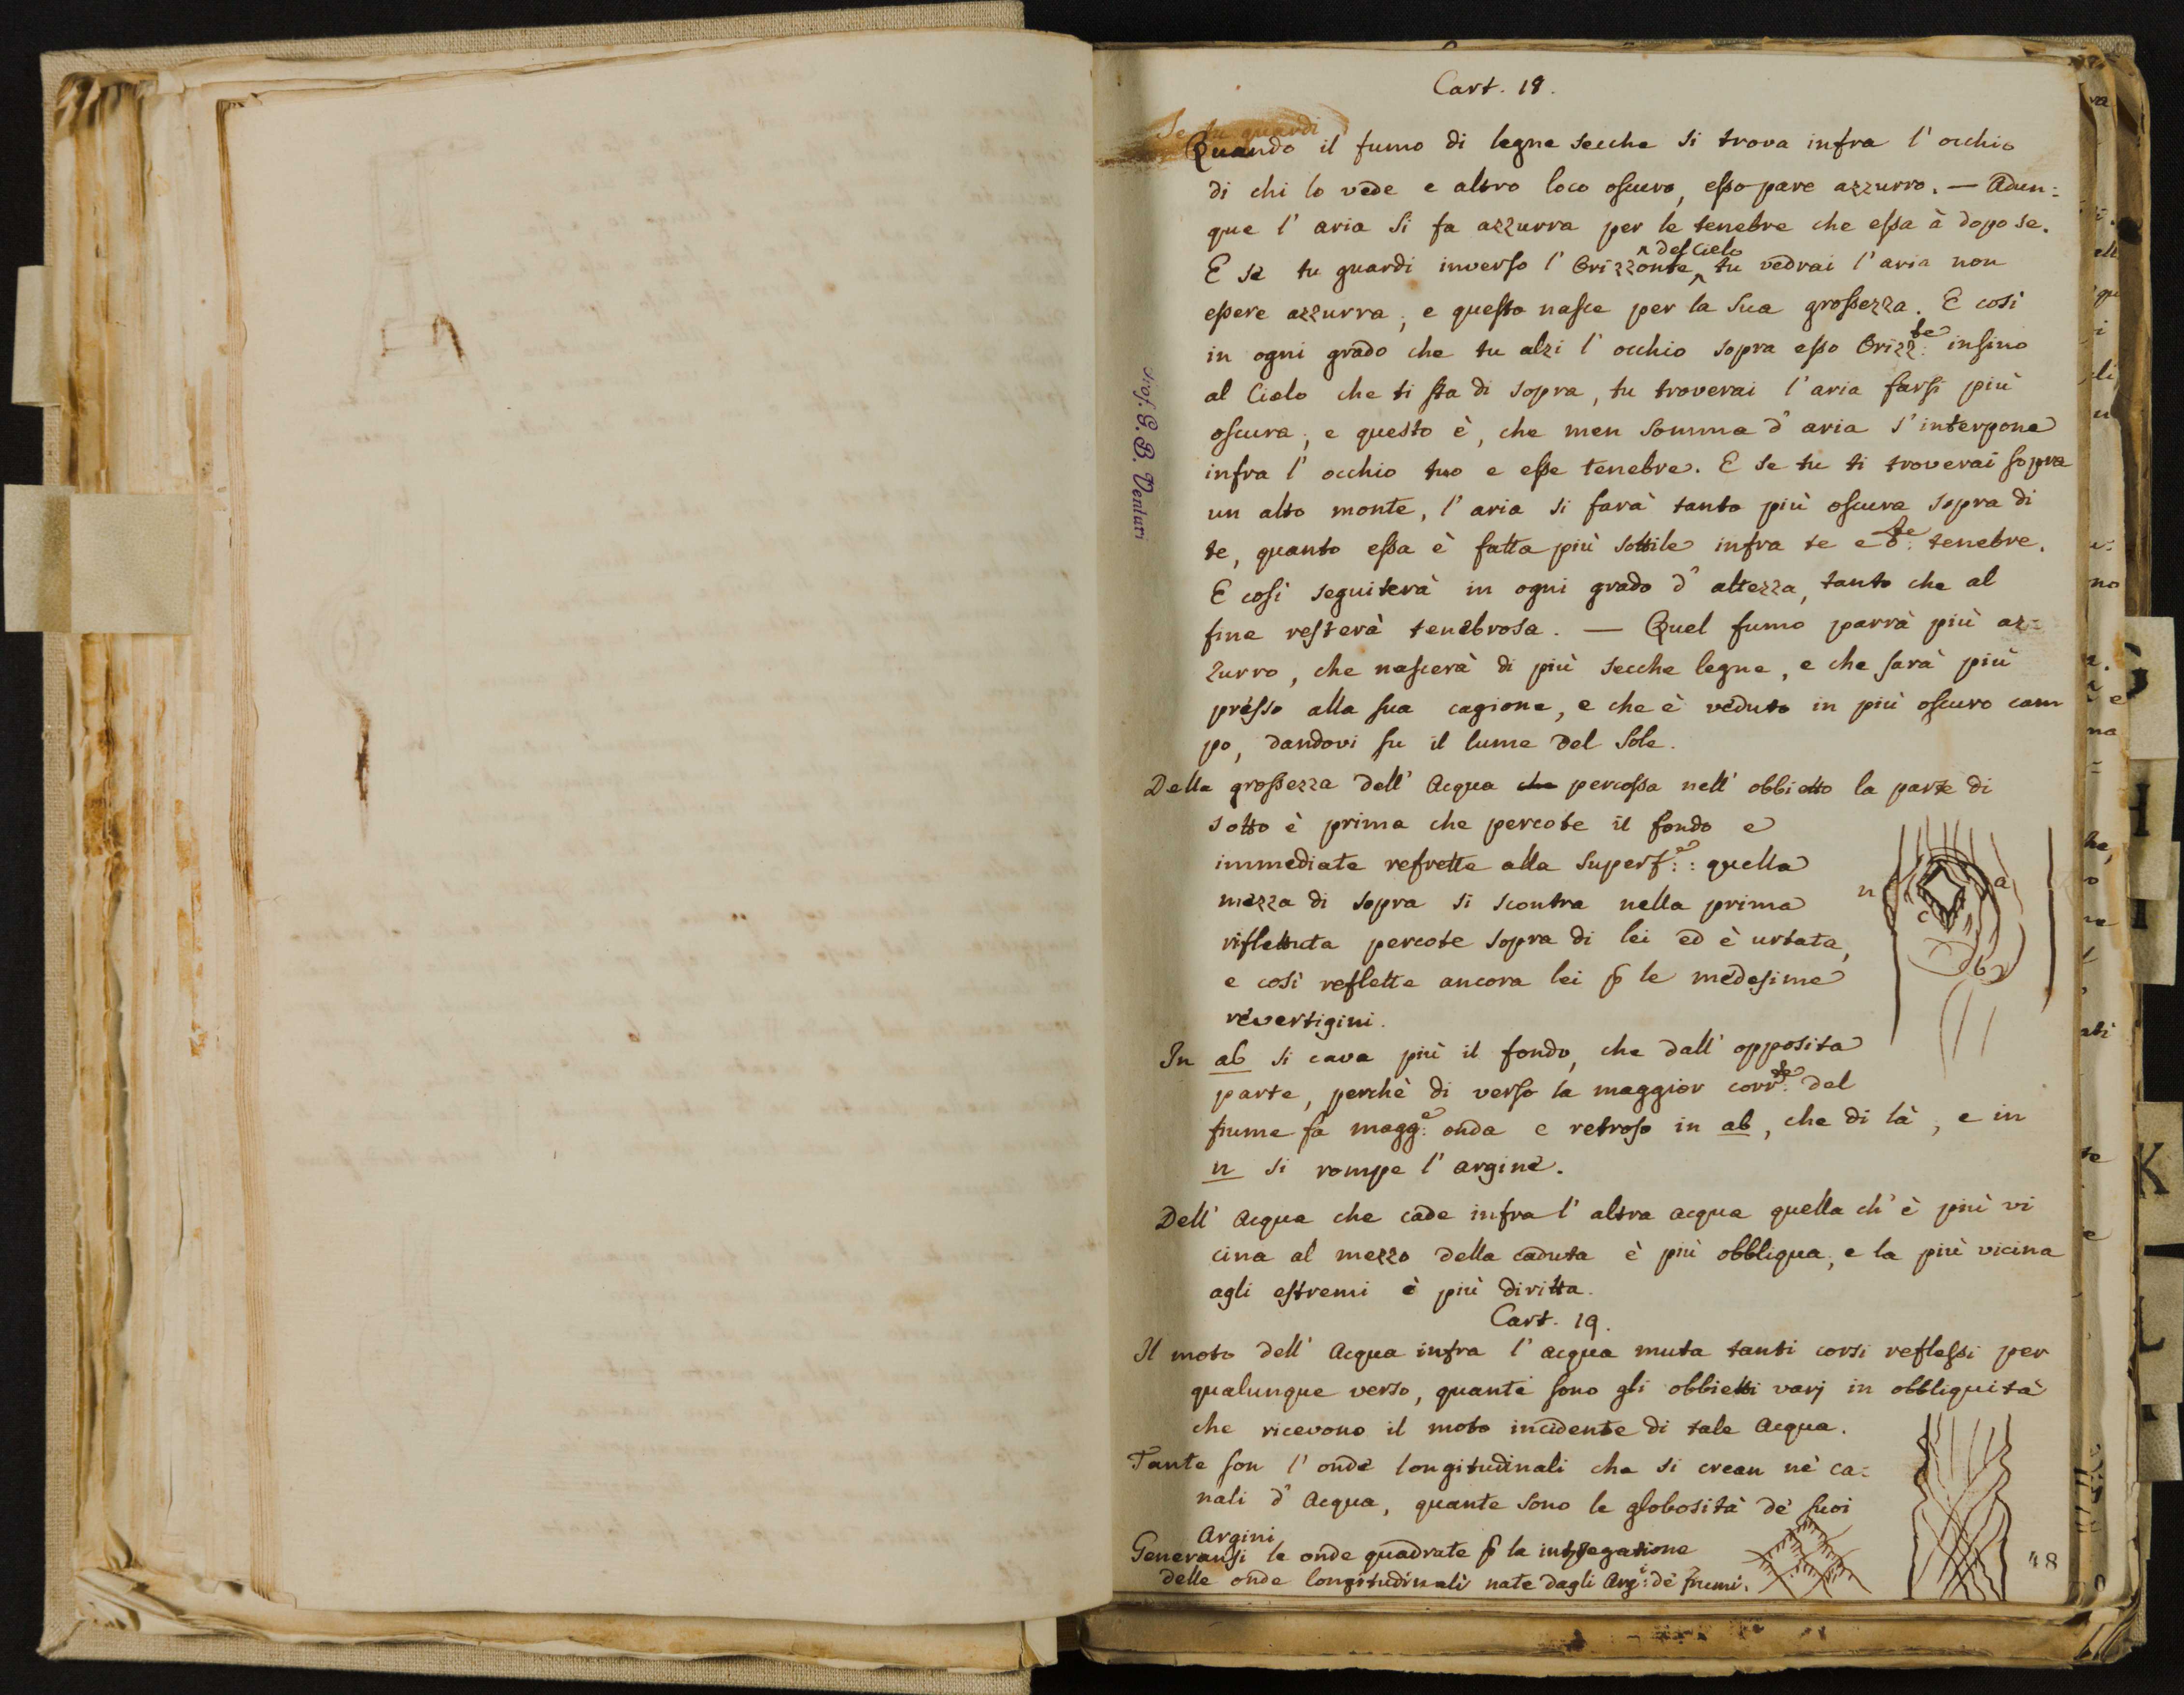 Cart. 18.
Se tu guardi
Quando il fumo di legne secche si trova infra l' occhio
di chi lo vede e altro loco oscuro, esso pare azzurro. — Adun=
que l' aria si fa azzurra per le tenebre che essa à dopo se.
^ del Cielo
E se tu guardi inverso l' Orizzonte ^ tu vedrai l' aria non
essere azzurra; e questo nasce per la sua grossezza. E così
in ogni grado che tu alzi l' occhio sopra esso Orizz:te insino
al Cielo che ti sta di sopra, tu troverai l' aria farsi più
oscura; e questo è, che men somma d' aria s' interpone
infra l' occhio tuo e esse tenebre. E se tu ti troverai sopra
un alto monte, l' aria si farà tanto più oscura sopra di
te, quanto essa è fatta più sottile infra te e d:te tenebre.
E così seguiterà in ogni grado d' altezza, tanto che al
fine resterà tenebrosa. — Quel fumo parrà più az=
zurro, che nascerà di più secche legne, e che sarà più
presso alla sua cagione, e che è veduto in più oscuro cam
po, dandovi su il lume del Sole.
Della grossezza dell' Acqua che percossa nell' obbietto la parte di
sotto è prima che percote il fondo e
immediate refrette alla superf:e: quella
mezza di sopra si scontra nella prima
riflettuta percote sopra di lei ed è urtata,
e così reflette ancora lei p le medesime
revertigini.
n a c b
In ab si cava più il fondo, che dall' opposita
parte, perchè di verso la maggior corr:te del
fiume fa magg:e onda e retroso in ab, che di là, e in
n si rompe l' argine.
Dell' Acqua che cade infra l' altra acqua quella ch' è più vi
cina al mezzo della caduta è più obbliqua, e la più vicina
agli estremi è più diritta.
Cart. 19.
Il moto dell' Acqua infra l' acqua muta tanti corsi reflessi per
qualunque verso, quanti sono gli obbietti varj in obbliquità
che ricevono il moto incidente di tale Acqua.
Tante son l' onde longitudinali che si crean nè ca=
nali d' Acqua, quante sono le globosità de' suoi
Argini
Generansi le onde quadrate p la intersegatione
delle onde longitudinali nate dagli Arg:i de' fiumi.
48
Prof. G. B. Venturi
K